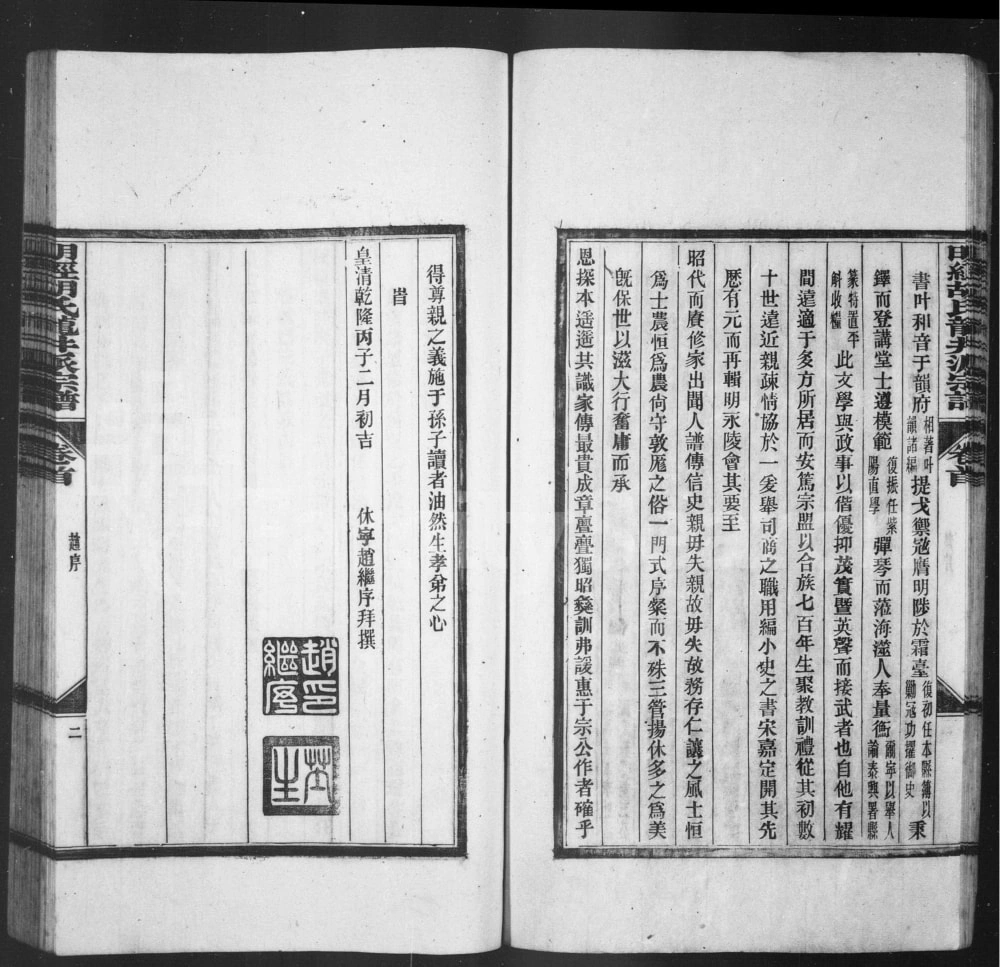 明經胡氏龍井派宗譜 卷首
書叶和音于韻府相著叶韻諸編提戈禦寇膺明陟於霜臺復初任本縣簿以勦寇功擢御史秉
鐸而登講堂士遵模範復振任紫陽直學彈琴而蒞海澨人奉量衡爾寧以舉人諭泰興署縣
篆特置平斛收糧此文學與政事以偕優抑茂實曁英聲而接武者也自他有耀
間遠適于多方所居而安篤宗盟以合族七百年生聚教訓禮從其初數
十世遠近親疎情協於一爰舉司商之職用編小史之書宋嘉定開其先
歷有元而再輯明永陵會其要至
昭代而賡修家出聞人譜傳信史親毋失親故毋失故務存仁讓之風士恒
爲士農恒爲農尙守敦厖之俗一門式序粲而不殊三管揚休多之爲美
旣保世以滋大行奮庸而承
恩探本遥遥共識家傳最貴成章亹亹獨昭彜訓弗諼惠于宗公作者確乎
得尊親之義施于孫子讀者油然生孝弟之心
旹
皇清乾隆丙子二月初吉 休寧趙繼序拜撰
趙繼序印
明經胡氏龍井派宗譜 卷首 趙序 二